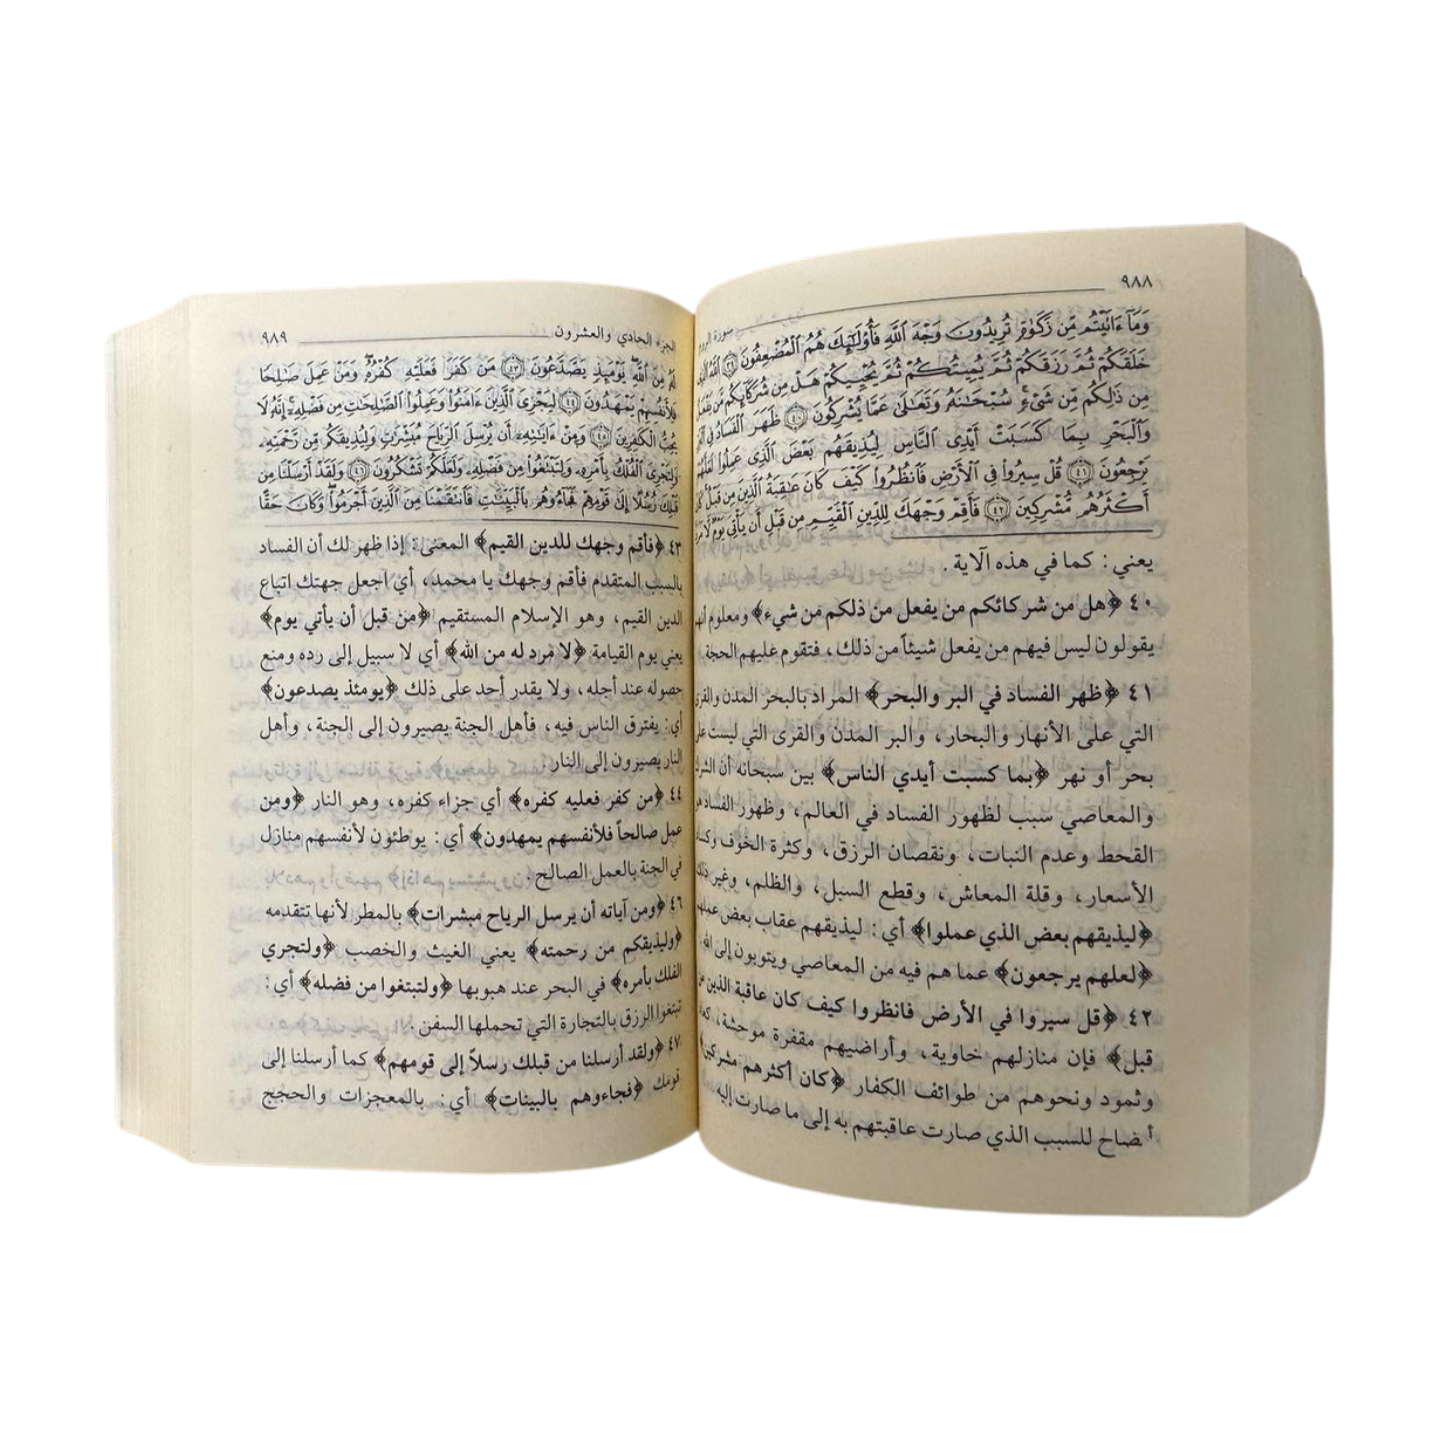 ٩٨٨
سورة الروم
وَمَآ ءَاتَيْتُم مِّن زَكَوٰةٍ تُرِيدُونَ وَجْهَ ٱللَّهِ فَأُوْلَٰٓئِكَ هُمُ ٱلْمُضْعِفُونَ ۝٣٩ ٱللَّهُ ٱلَّذِى
خَلَقَكُمْ ثُمَّ رَزَقَكُمْ ثُمَّ يُمِيتُكُمْ ثُمَّ يُحْيِيكُمْ هَلْ مِن شُرَكَآئِكُم مَّن يَفْعَلُ
مِن ذَٰلِكُم مِّن شَىْءٍ سُبْحَٰنَهُۥ وَتَعَٰلَىٰ عَمَّا يُشْرِكُونَ ۝٤٠ ظَهَرَ ٱلْفَسَادُ فِى ٱلْبَرِّ
وَٱلْبَحْرِ بِمَا كَسَبَتْ أَيْدِى ٱلنَّاسِ لِيُذِيقَهُم بَعْضَ ٱلَّذِى عَمِلُوا۟ لَعَلَّهُمْ
يَرْجِعُونَ ۝٤١ قُلْ سِيرُوا۟ فِى ٱلْأَرْضِ فَٱنظُرُوا۟ كَيْفَ كَانَ عَٰقِبَةُ ٱلَّذِينَ مِن قَبْلُ كَانَ
أَكْثَرُهُم مُّشْرِكِينَ ۝٤٢ فَأَقِمْ وَجْهَكَ لِلدِّينِ ٱلْقَيِّمِ مِن قَبْلِ أَن يَأْتِىَ يَوْمٌ لَّا مَرَدَّ
يعني: كما في هذه الآية .
٤٠ ﴿هل من شركائكم من يفعل من ذلكم من شيء﴾ ومعلوم أنهم
يقولون ليس فيهم من يفعل شيئاً من ذلك، فتقوم عليهم الحجة
٤١ ﴿ظهر الفساد في البر والبحر﴾ المراد بالبحر المدن والقرى
التي على الأنهار والبحار، والبر المدن والقرى التي ليست على
بحر أو نهر ﴿بما كسبت أيدي الناس﴾ بين سبحانه أن الشرك
والمعاصي سبب لظهور الفساد في العالم، وظهور الفساد هو
القحط وعدم النبات، ونقصان الرزق، وكثرة الخوف وكساد
الأسعار، وقلة المعاش، وقطع السبل، والظلم، وغير ذلك
﴿ليذيقهم بعض الذي عملوا﴾ أي: ليذيقهم عقاب بعض عملهم
﴿لعلهم يرجعون﴾ عما هم فيه من المعاصي ويتوبون إلى الله.
٤٢ ﴿قل سيروا في الأرض فانظروا كيف كان عاقبة الذين من
قبل﴾ فإن منازلهم خاوية، وأراضيهم مقفرة موحشة، كعاد
وثمود ونحوهم من طوائف الكفار ﴿كان أكثرهم مشركين﴾
إيضاح للسبب الذي صارت عاقبتهم به إلى ما صارت إليه
الجزء الحادي والعشرون
٩٨٩
لَهُۥ مِنَ ٱللَّهِ يَوْمَئِذٍ يَصَّدَّعُونَ ۝٤٣ مَن كَفَرَ فَعَلَيْهِ كُفْرُهُۥ وَمَنْ عَمِلَ صَٰلِحًا
فَلِأَنفُسِهِمْ يَمْهَدُونَ ۝٤٤ لِيَجْزِىَ ٱلَّذِينَ ءَامَنُوا۟ وَعَمِلُوا۟ ٱلصَّٰلِحَٰتِ مِن فَضْلِهِۦٓ إِنَّهُۥ لَا
يُحِبُّ ٱلْكَٰفِرِينَ ۝٤٥ وَمِنْ ءَايَٰتِهِۦٓ أَن يُرْسِلَ ٱلرِّيَاحَ مُبَشِّرَٰتٍ وَلِيُذِيقَكُم مِّن رَّحْمَتِهِۦ
وَلِتَجْرِىَ ٱلْفُلْكُ بِأَمْرِهِۦ وَلِتَبْتَغُوا۟ مِن فَضْلِهِۦ وَلَعَلَّكُمْ تَشْكُرُونَ ۝٤٦ وَلَقَدْ أَرْسَلْنَا مِن
قَبْلِكَ رُسُلًا إِلَىٰ قَوْمِهِمْ فَجَآءُوهُم بِٱلْبَيِّنَٰتِ فَٱنتَقَمْنَا مِنَ ٱلَّذِينَ أَجْرَمُوا۟ وَكَانَ حَقًّا
٤٣ ﴿فأقم وجهك للدين القيم﴾ المعنى: إذا ظهر لك أن الفساد
بالسبب المتقدم فأقم وجهك يا محمد، أي اجعل جهتك اتباع
الدين القيم، وهو الإسلام المستقيم ﴿من قبل أن يأتي يوم﴾
يعني يوم القيامة ﴿لا مرد له من الله﴾ أي لا سبيل إلى رده ومنع
حصوله عند أجله، ولا يقدر أحد على ذلك ﴿يومئذ يصدعون﴾
أي: يفترق الناس فيه، فأهل الجنة يصيرون إلى الجنة، وأهل
النار يصيرون إلى النار
٤٤ ﴿من كفر فعليه كفره﴾ أي جزاء كفره، وهو النار ﴿ومن
عمل صالحاً فلأنفسهم يمهدون﴾ أي: يوطئون لأنفسهم منازل
في الجنة بالعمل الصالح .
٤٦ ﴿ومن آياته أن يرسل الرياح مبشرات﴾ بالمطر لأنها تتقدمه
﴿وليذيقكم من رحمته﴾ يعني الغيث والخصب ﴿ولتجري
الفلك بأمره﴾ في البحر عند هبوبها ﴿ولتبتغوا من فضله﴾ أي:
تبتغوا الرزق بالتجارة التي تحملها السفن .
٤٧ ﴿ولقد أرسلنا من قبلك رسلاً إلى قومهم﴾ كما أرسلنا إلى
قومك ﴿فجاءوهم بالبينات﴾ أي: بالمعجزات والحجج